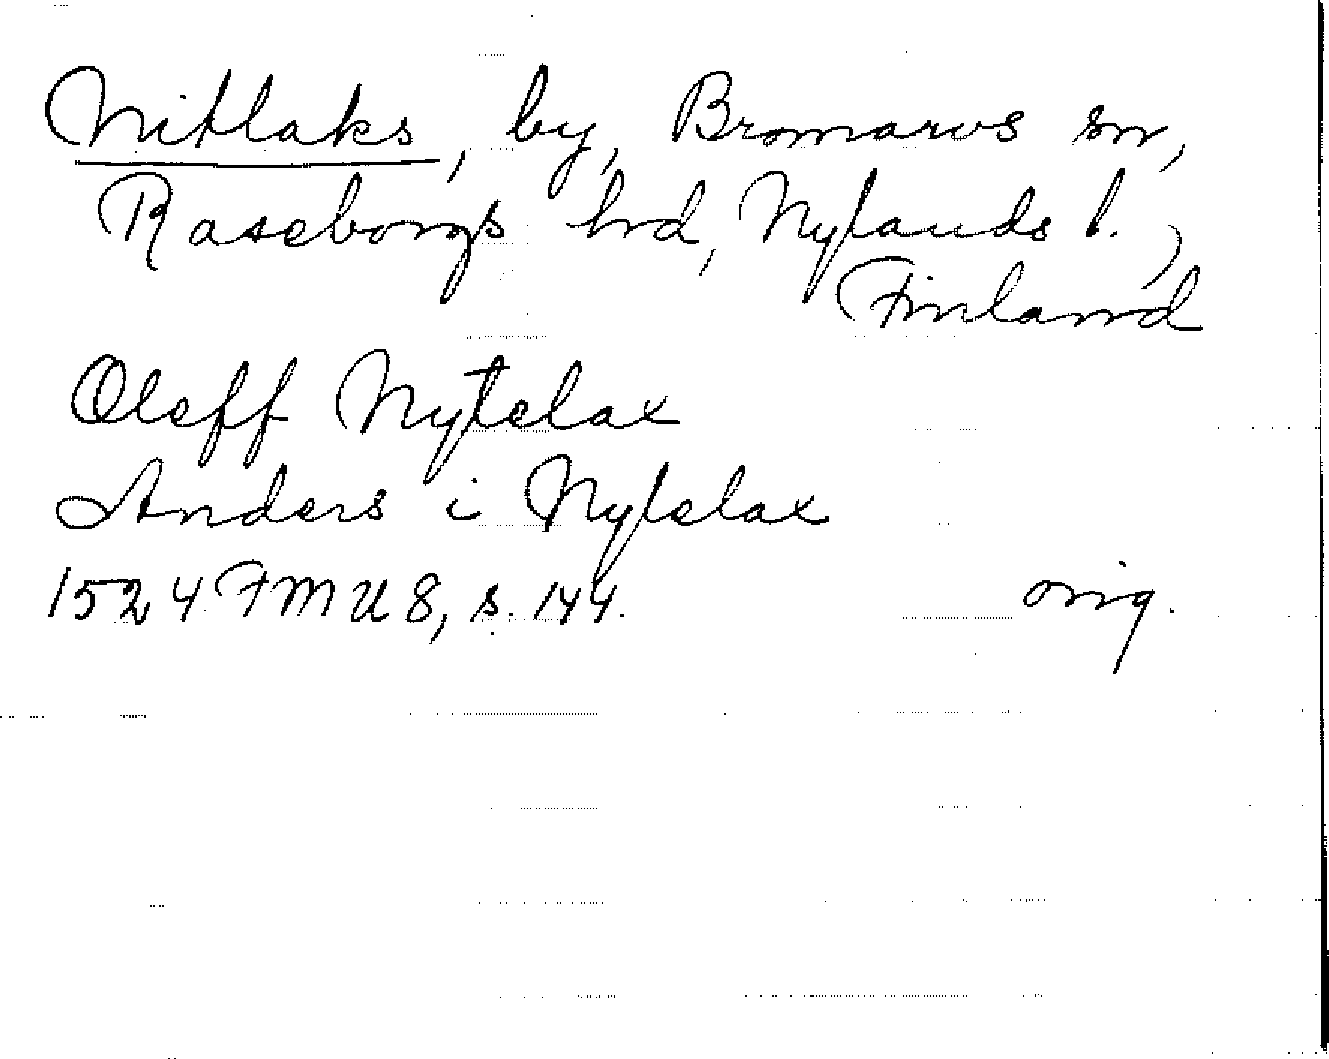 Nitlaks, by, Bromarvs sn,
Raseborgs hrd, Nylands l.,
Finland
Oleff Nytelax
Anders i Nytelax
1524 FMU 8, s. 144. orig.